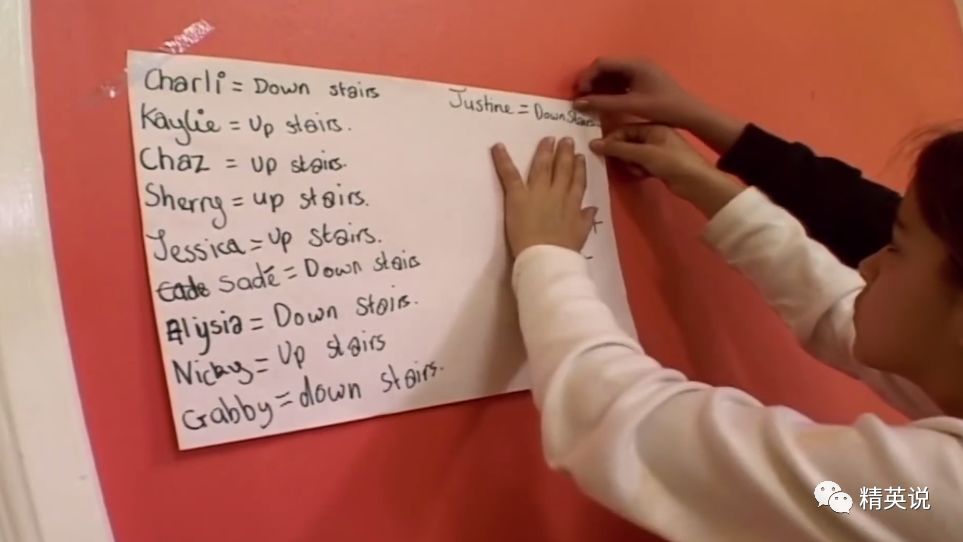 Charli = Down stairs
Kaylie = Up stairs.
Chaz = Up stairs.
Sherry = up stairs.
Jessica = Up stairs.
Sadé = Down stairs
Alysia = Down stairs.
Nicky = Up stairs
Gabby = down stairs.
Justine = Down Stairs
+
-
精英说